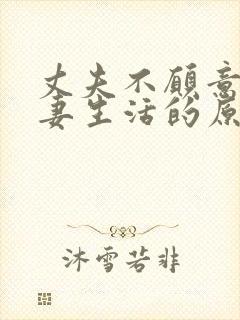 丈夫不顾意
妻生活的原
沐雪若非